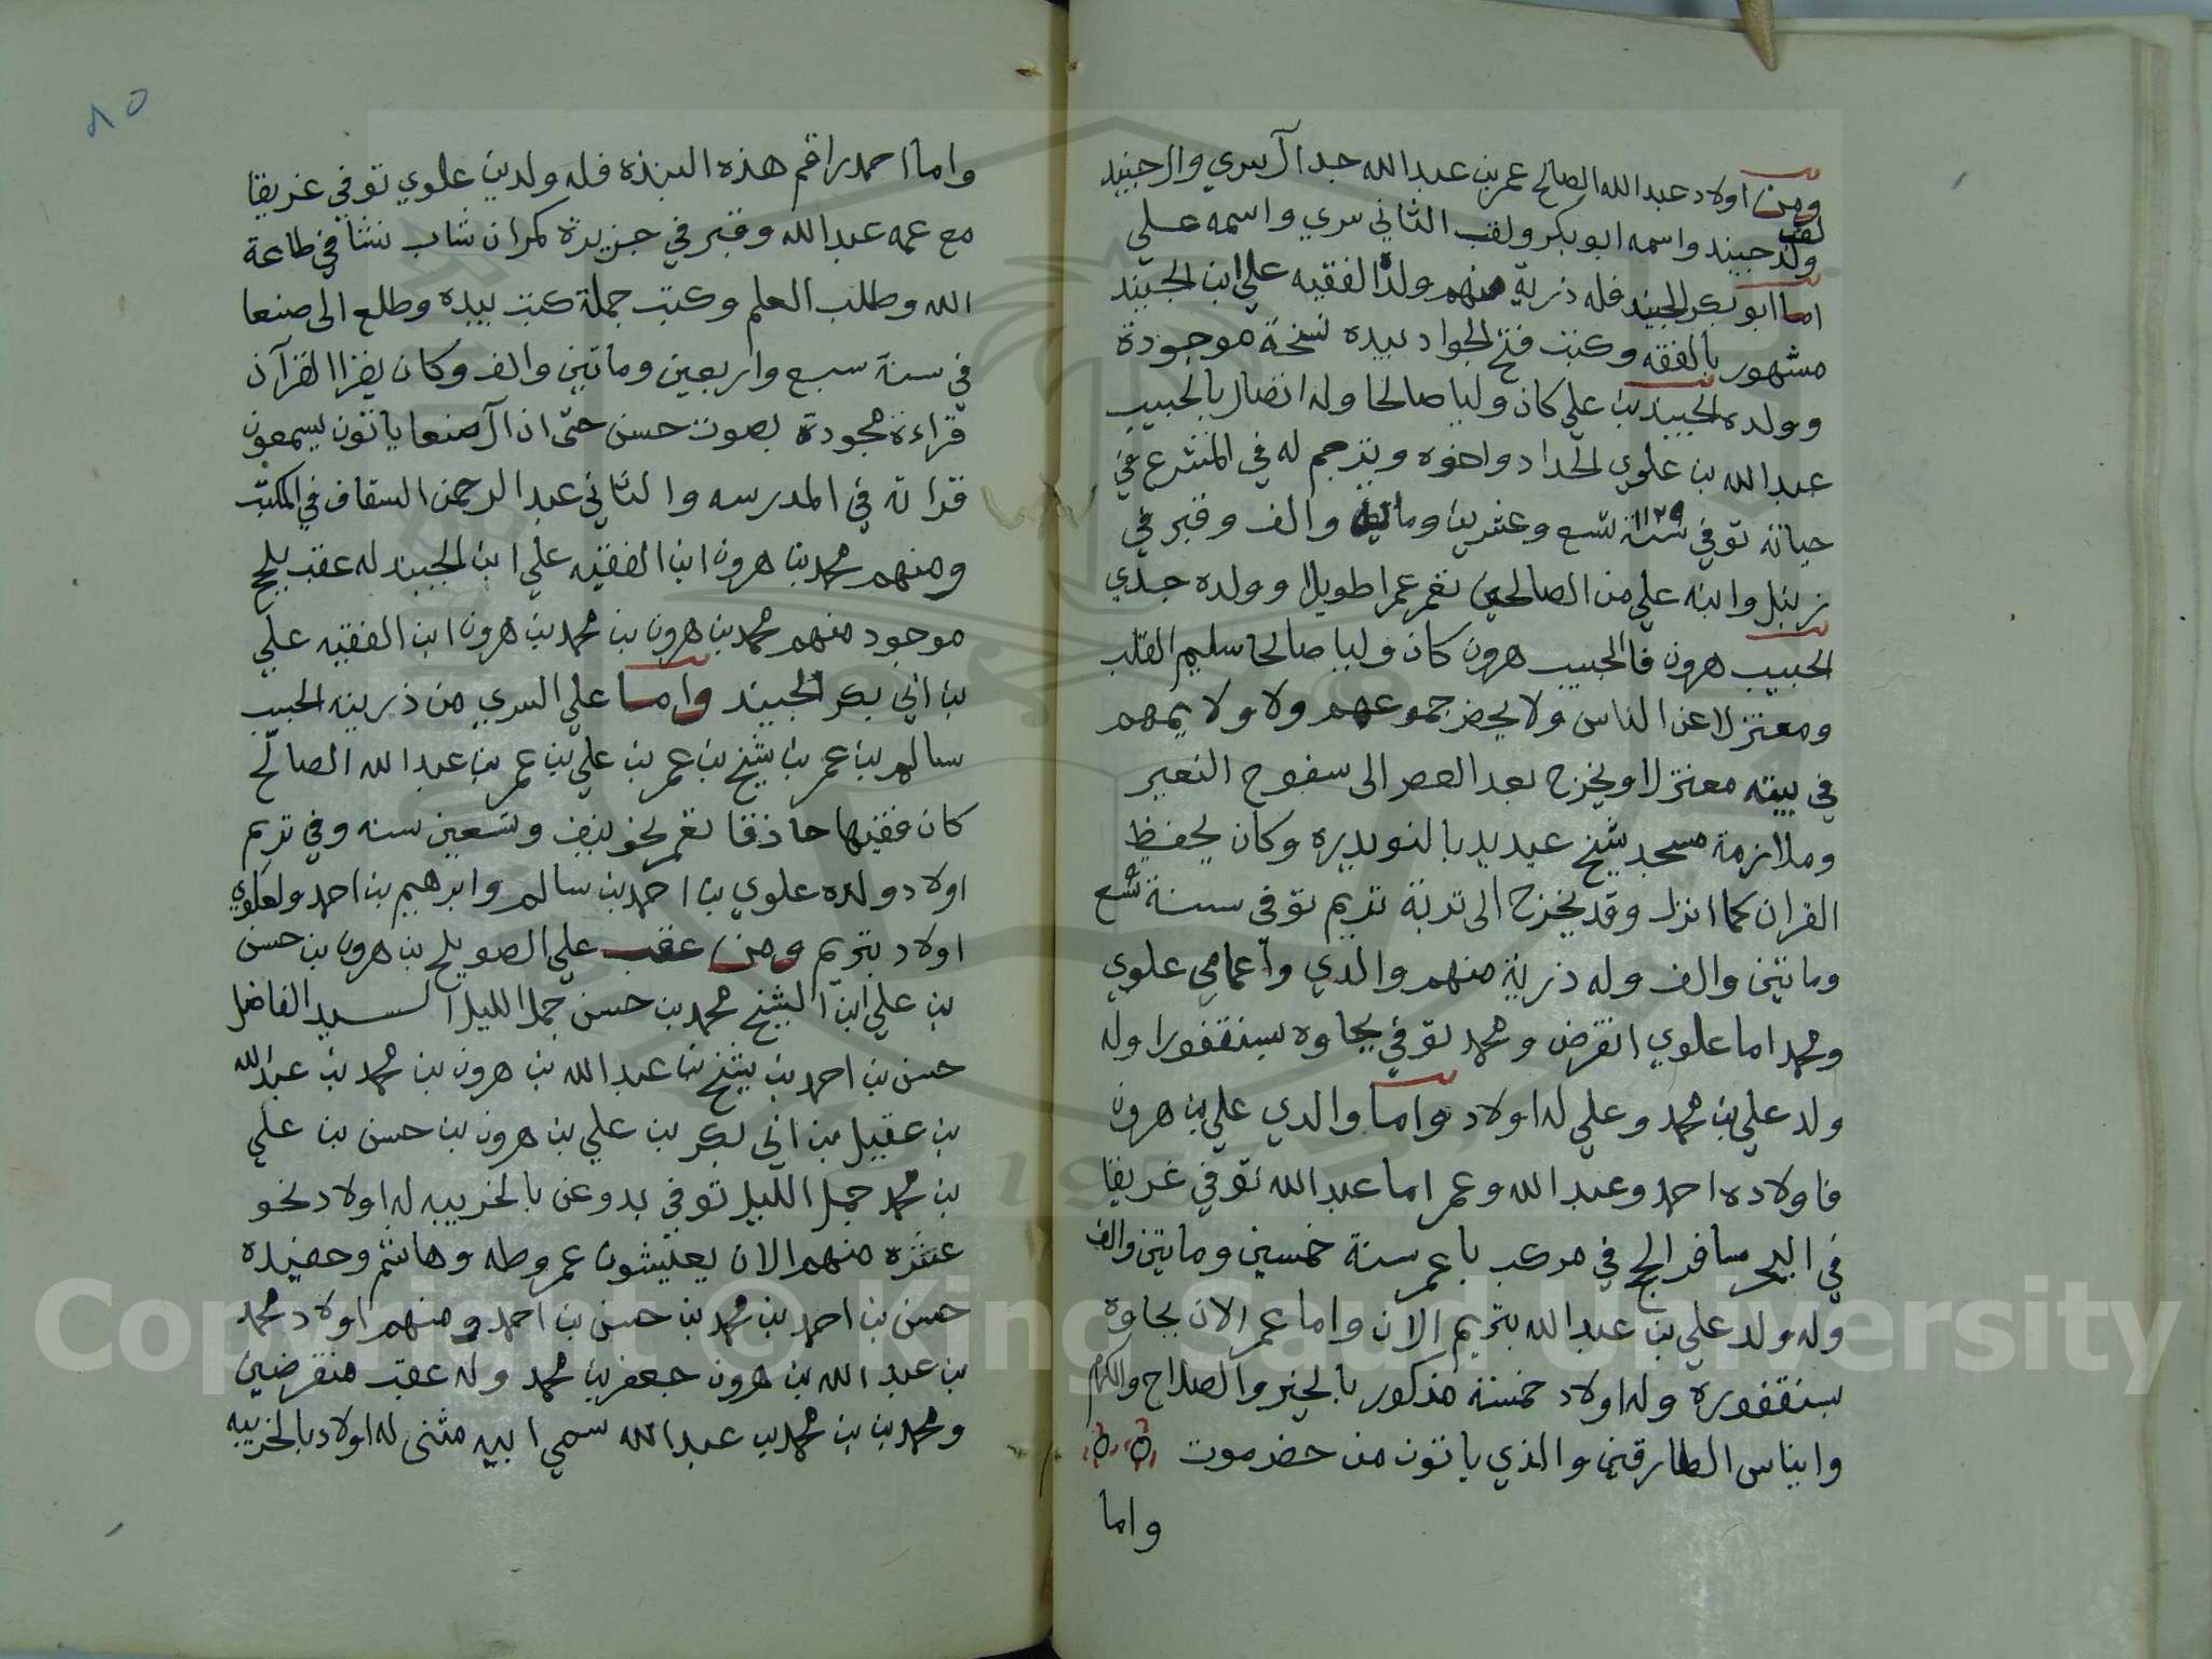 ومن اولاد عبدالله الصالح عمر بن عبدالله جد آل سري وال جنيد
لقب
ولد جنيد واسمه ابو بكر ولقب الثاني سري واسمه علي
اما ابو بكر الجنيد فله ذرية منهم ولد الفقيه علي ابن الجنيد
مشهور بالفقه وكتب فتح الجواد بيده نسخة موجودة
وولده الجنيد بن علي كان وليا صالحا وله اتصال بالحبيب
عبدالله بن علوي الحداد واخوه وترجم له في المشرع في
حياته توفي سنة ١١٢٩ تسع وعشرين ومائة والف وقبر في
زنبل وابنه علي من الصالحين تعمر عمرا طويلا وولده جدي
الحبيب هرون فالحبيب هرون كان وليا صالحا سليم القلب
ومعتزلا عن الناس ولا يحضر جموعهم ولا ولايمهم
في بيته معتزلا ويخرج بعد العصر الى سفوح النعير
وملازمة مسجد شيخ عيديد بالنويدره وكان يحفظ
القران كما انزل وقد يخرج الى تربة تريم توفي سنة تسع
وماتين والف وله ذرية منهم والدي واعمامي علوي
ومحمد اما علوي انقرض ومحمد توفي بجاوه بسنقفورا وله
ولد علي بن محمد وعلي له اولاد واما والدي علي بن هرون
فاولاده احمد وعبدالله وعمر اما عبدالله توفي غريقا
في البحر مسافر الحج في مركب باعمر سنة خمسين وماتين والف
وله ولد علي بن عبدالله بتريم الان واما عمر الان بجاوه
سنقفوره وله اولاد خمسة مذكور بالخير والصلاح والكرم
وايناس الطارقين والذي ياتون من حضرموت
واما
٨٥
واما احمد راقم هذه النبذه فله ولدين علوي توفي غريقا
مع عمه عبدالله وقبر في جزيرة كمران شاب نشا في طاعة
الله وطلب العلم وكتب جملة كتب بيده وطلع الى صنعا
في سنة سبع واربعين وماتين والف وكان يقرا القرآن
قراءة مجودة بصوت حسن حتى ان آل صنعا ياتون يسمعون
قراته في المدرسه والثاني عبد الرحمن السقاف في المكتب
ومنهم محمد بن هرون ابن الفقيه علي ابن الجنيد له عقب بلحج
موجود منهم محمد بن هرون بن محمد بن هرون ابن الفقيه علي
بن ابي بكر الجنيد واما علي السري من ذريته الحبيب
سالم بن عمر بن شيخ بن عمر بن علي بن عمر بن عبدالله الصالح
كان فقيها حاذقا تعمر نحو نيف وتسعين سنه وفي تريم
اولاد ولده علوي بن احمد بن سالم وابرهيم بن احمد ولعلوي
اولاد بتريم ومن عقب علي الصويلح بن هرون بن حسن
بن علي ابن الشيخ محمد بن حسن جمل الليل السيد الفاضل
حسن بن احمد بن شيخ بن عبدالله بن هرون بن محمد بن عبدالله
بن عقيل بن ابي بكر بن علي بن هرون بن حسن بن علي
بن محمد جمل الليل توفي بدوعن بالخريبه له اولاد نحو
عشره منهم الان يعيشون عمر وطه وهاشم وحفيده
حسن بن احمد بن محمد بن حسن بن احمد ومنهم اولاد محمد
بن عبدالله بن هرون جعفر بن محمد وله عقب منقرضين
ومحمد بن بن محمد بن عبدالله سمي ابيه مثنى له اولاد بالخريبه
Copyright © King Saud University